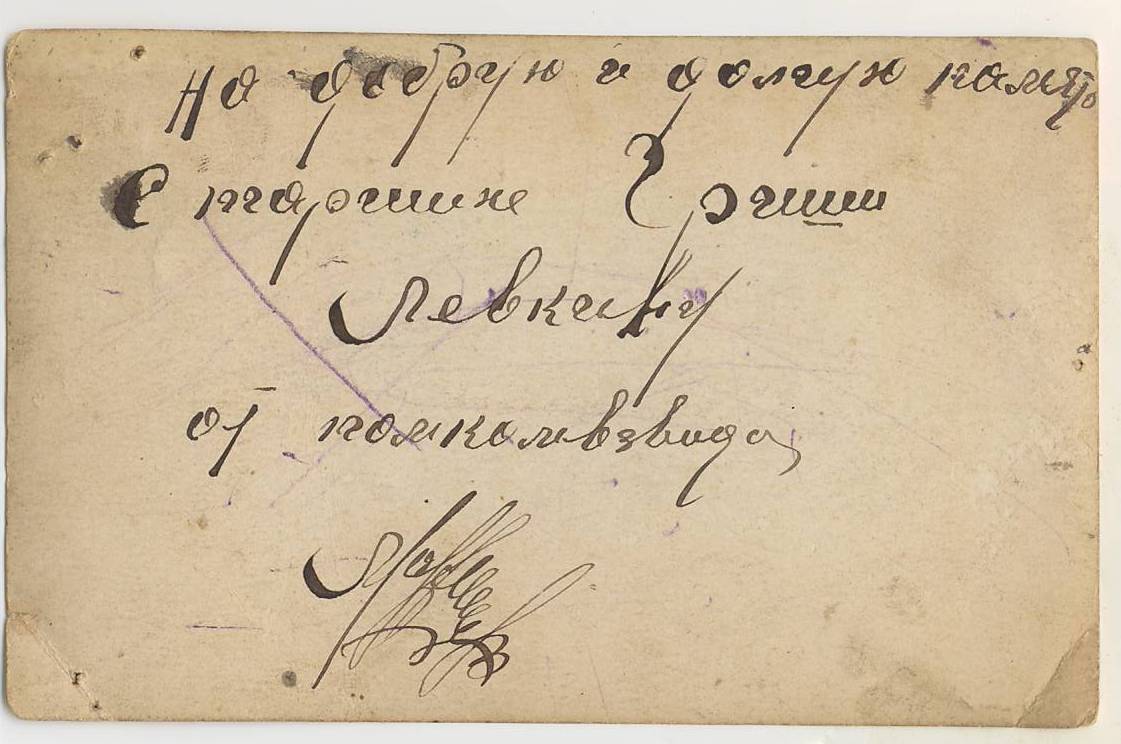 На добрую и долгую память
Старшине Гриши
Левкину
от помкомвзвода